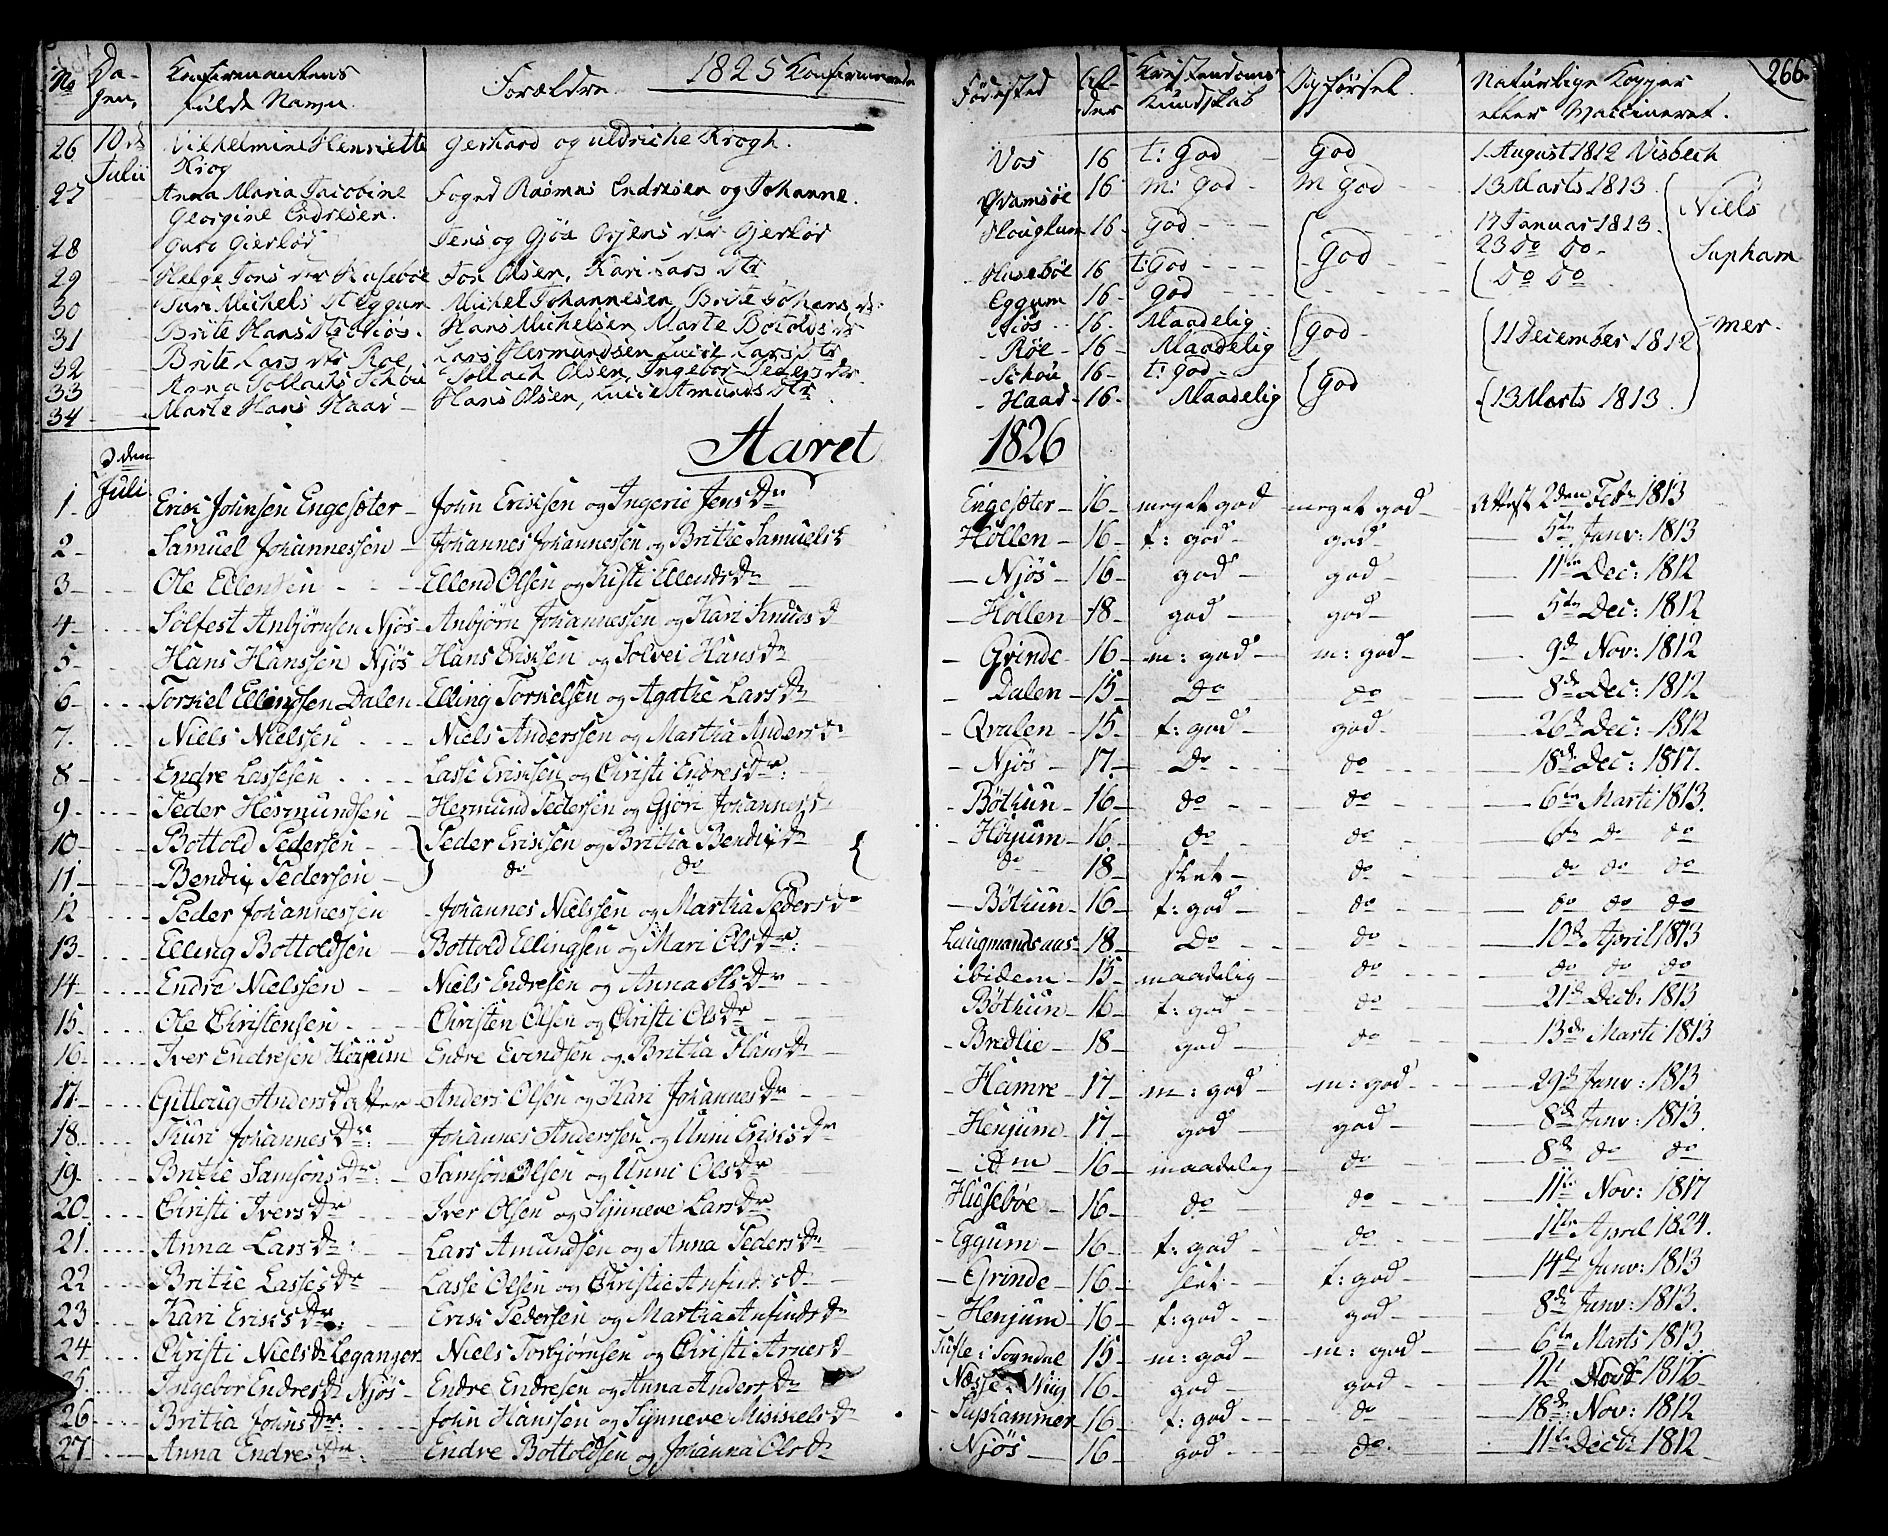 1825 Konfirmerede
266
No Dagen, Konfirmantens fulde Navn. Forældre Fødested Alder Kristendoms Kundskab Opførsel. Naturlige Kopper eller Vaccineret.
26 10de Julii Vilhelmine Henriette Krog Gerhard og Uldriche Krogh. Vos 16 t: God God 1 August 1812 Visbech
27 Anna Maria Jacobine Georgine Endresen. Foged Rasmus Endresen og Johanne. 16 m: God M God 13 Marts 1813. Niels
28 Guro Gierløv Jens og Gjøa Gjerløv 16 God God 17 Januar 1813.
29 Helge Jons Dtr Husebøe Jon Olsen, Kari Lars Dtr Husebøe 16 t: God 23 Do Do Suphammer.
30 Michels Dt Eggum Michel Johannesen, Brite Johans Dr: Eggum 16 God Do Do
31 Brite Hans Dtr Niøs. Hans Michelsen Marte Botolvs Dr Niøs 16 Maadelig God 11 December 1812
32 Brite Lars Dtr Røe Lars Hermundsen Lucie Lars Dtr Røe 16 Maadelig
33 Anna Tollachs Schou Tollach Olsen, Ingebor Peders Dr. Schou 16 t: god God
34 Marte Hans Haad Hans Olsen, Lucie Amunds Dtr Haad 16 Maadelig 13 Marts 1813.
Aaret 1826
den Juli
1 Erik Johnsen Engesæter John Eriksen og Ingerie Jens Dr Engesæter 16 meget god meget god Attest 2den Febr 1813
2 Samuel Johannessen Johannes Johannessen og Brithe Samuels D Hollen 16 t: god god 5te Janv: 1813
3 Ole Ellensen Ellend Olsen og Kisti Ellends Dr Njøs 16 god god 11te Dec: 1812
4 Sølfest Anbjørnsen Njøs Anbjørn Johannessen og Kari Knuds D Hollen 18 god god 5te Dec: 1812
5 Hans Hanssen Njøs Hans Eriksen og Solvei Hans Dr Grinde 16 m: god m: god 9de Nov: 1812
6 Torkel Ellingsen Dalen Elling Torkelsen og Agathe Lars Dr Dalen 15 Do do 8de Dec: 1812
7. Niels Nielssen Niels Anderssen og Martha Anders D Qvalen 15 t: god god 26de Dec: 1812
8 Endre Lassesen Lasse Eriksen og Christi Endres Dr: Njøs 17 Do do 18de Dec: 1817.
9 Peder Hermundsen Hermund Pedersen og Gjøri Johannes Böthun 16 do do 6te Marti 1813.
10 Bottold Pedersen Peder Eriksen og Britha Bendix Dr Höjum 16 do do 6te do do
11 Bendix Pedersen do do do 18 slet do do do do
12 Peder Johannessen Johannes Nielssen og Martha Peders Dr Böthun 16 t: god do do do do
13. Elling Bottoldsen Bottold Ellingsen og Mari Ols Dr: Laugmandsaas 18 Do do 10de April 1813
14 Endre Nielssen Niels Endresen og Anna Ols Dr ibidem 15 maadelig do do do do
15. Ole Christensen Christen Olsen og Christi Ols Dr Böthun 16 t: god do 21de Decb: 1813
16 Iver Endresen Höjum Endre Evindsen og Britha Hans Dr Bredlie 18 god do 13de Marti 1813
17. Gitloug Anders Datter Anders Olsen og Kari Johannes Dr Hamre 17 m: god m: god 29de Janv: 1813
18. Kari Johannes Dr: Johannes Anderssen og Unni Eriks Dr Henjum 17 god god 8de Janv: 1813.
19. Brithe Samsons Dr: Samson Olsen og Unni Ols Dr item 16 maadelig do 8de do do
20 Christi Ivers Dr Iver Olsen og Synneve Lars Dr Husebøe 16 do do 11te Nov: 1817
21. Anna Lars Dr: Lars Amundsen og Anna Peders Dr Eggum 16 t: god do 1ste April 1824.
22 Brithe Lasses Dr Lasse Olsen og Christie Anfinds D Grinde 16 slet t: god 14de Janv: 1813
23 Kari Eriks Dr: Erik Pedersen og Martha Anfinds Dr Henjum 16 t: god god 8de Janv: 1813.
24. Christi Niels D Leganger Niels Torbjørnsen og Christi Arnes D i Sogndal 15 m: god m: god 6te Marts 1813.
25. Ingebor Endres D Njøs Endre Endresen og Anna Anders Dr 16 god god 1812
26 Britha Johns Dr: John Hanssen og Synneve Mikkels Dr Suphammer 16 t: god do 18de Nov: 1812
27 Anna Endres Dr: Endre Bottoldsen og Johanna Ols Dr Njøs 16 god do 11te Decb 1812